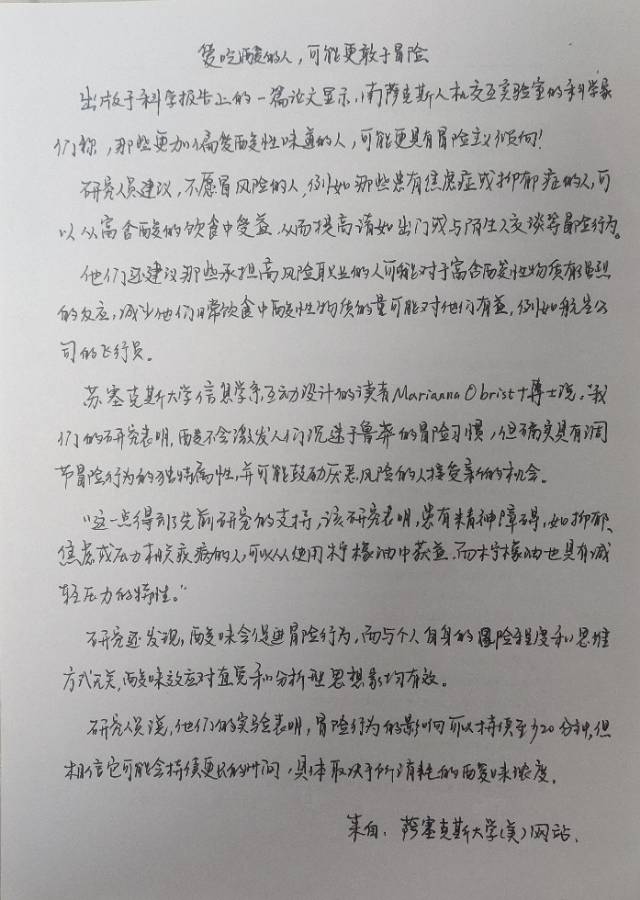 爱吃酸的人，可能更敢于冒险
出版于科学报告上的一篇论文显示，南萨克斯人机交互实验室的科学家
们称，那些更加偏爱酸性味道的人，可能更具有冒险主义倾向！
研究人员建议，不愿冒风险的人，例如那些患有焦虑症或抑郁症的人，可
以从富含酸的饮食中受益，从而提高诸如出门或与陌生人交谈等冒险行为。
他们还建议那些承担高风险职业的人可能对于富含酸性物质有强烈
的反应，减少他们日常饮食中酸性物质的量可能对他们有益，例如航空公
司的飞行员。
苏塞克斯大学信息学系互动设计的读者Marianna Obrist博士说，"我
们的研究表明，酸不会激发人们沉迷于鲁莽的冒险习惯，但确实具有调
节冒险行为的独特属性，并可能鼓励厌恶风险的人接受新的机会。
"这一点得到了先前研究的支持，该研究表明，患有精神障碍，如抑郁、
焦虑或压力相关疾病的人，可以从使用柠檬油中获益，而柠檬油也具有减
轻压力的特性。"
研究还发现，酸味会促进冒险行为，而与个人自身的冒险程度和思维
方式无关，酸味效应对直觉和分析型思想家均有效。
研究人员说，他们的实验表明，冒险行为的影响可以持续至少20分钟，但
相信它可能会持续更长的时间，具体取决于所消耗的酸味浓度。
来自：萨塞克斯大学(美)网站.